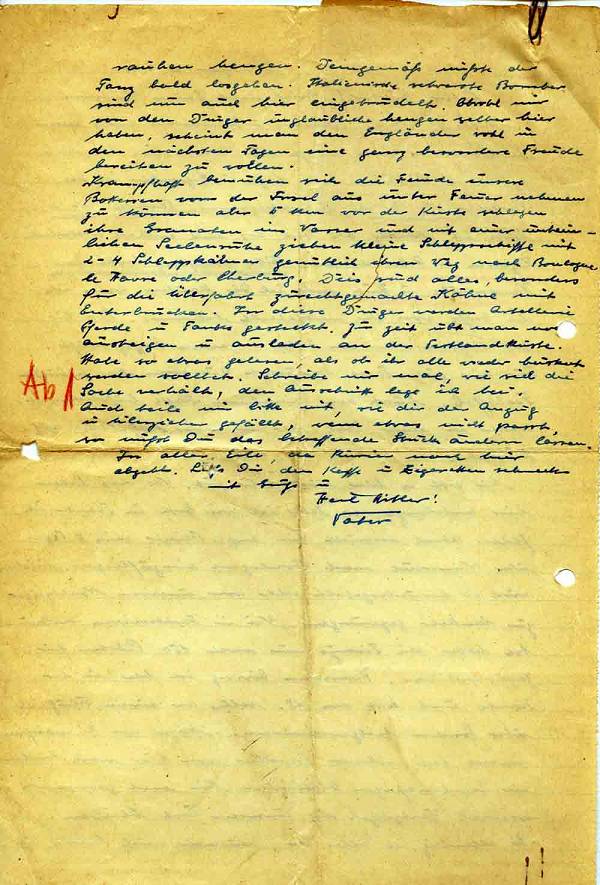 rauhen Mengen. Demgemäß müßte der
Tanz bald losgehen. Italienische schwerste Bomber
sind nun auch hier eingetrudelt. Obwohl wir
von den Dinger unglaubliche Mengen selber hier
haben, scheint man den Engländer wohl in
den nächsten Tagen eine ganz besondere Freude
bereiten zu wollen.
Krampfhaft bemühen sich die Feinde unsere
Batterien von der Insel aus unter Feuer nehmen
zu können aber 5 km vor der Küste schlagen
ihre Granaten ins Wasser und mit einer
lichen Seelenruhe ziehen kleine Schleppschiffe mit
2-4 Schleppkähnen gemütlich ihren Weg nach Boulogne
le Havre oder Cherburg. Dies sind alles, besonders
für die Überfahrt zurechtgemachte Kähne mit
Enterbrücken. In diese Dinger werden Artellerie
Pferde u Tanks gestellt. Zu zeit übt man nur
aussteigen u ausladen an der Festlandküste.
Habe so etwas gelesen, als ob ihr alle wieder
werden solltet. Schreibe mir mal, wie sich die
Sache verhält, den Ausschnitt lege ich bei.
Auch teile mir bitte mit, wie dir der Anzug
u gefällt, wenn etwas nicht passt,
so mußt Du das betreffende Stück ändern lassen.
In aller Eile, da Kurier nach hier
abgeht. Laß Du den Kaffe u Zigaretten schmecken
mit Gruß u
Heil Hitler!
Vater
Ab 1